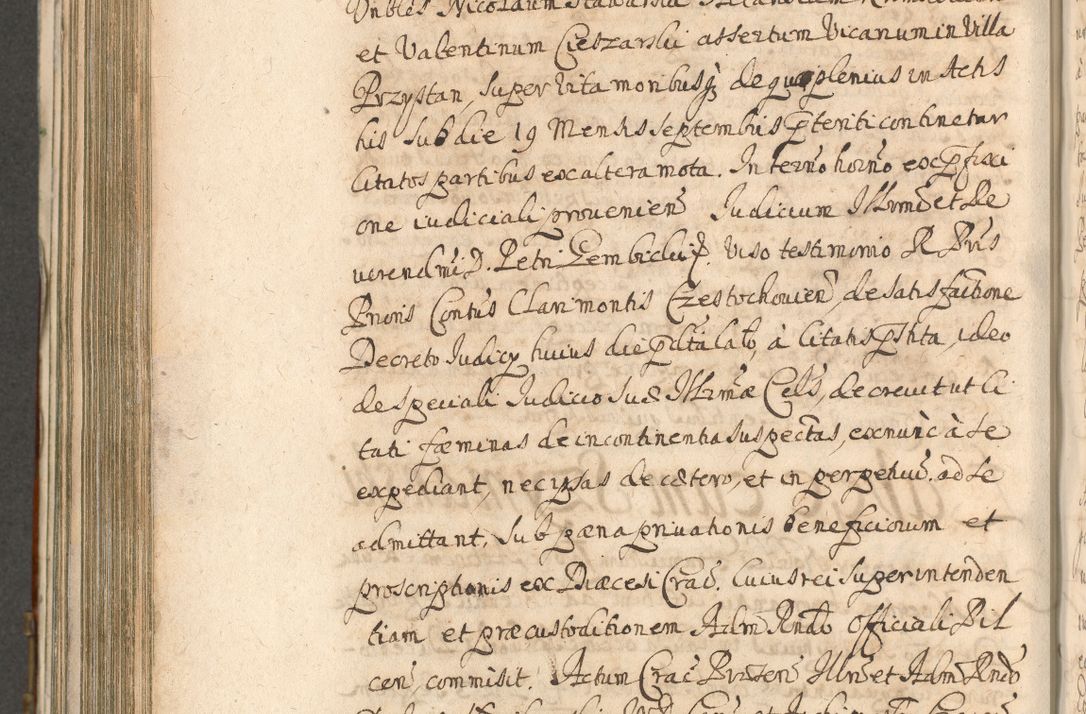 Vnbles Nicolaum
et Valentinum Cieszarski assertum Vicanum in Villa
Przystan, super Vita moribusq̃ de quo plenius in Actis
his sub die 19 Mensis Septembris p̄teriti continetur
Citatos partibus ex altera mota. In termō hornō ex p̄fixi
one iudiciali provenien̄ Iudicium Illrm̄i et Re
verendmi D. Petri Gembicki Viso testimonio R. Pris
Prioris Contus Clarimontis Czestochovien̄, de satisfactione
Decreto Iudicy huius die lato, à Citatis p̄stita, ideo
de speciali Iudicio suæ Illrmæ Cels, decrevit ut Ci
tati fæminas de incontinentia suspectas, ex nunc à se
expediant, nec ipsas de cætero, et in perpetuū ad se
admittant, sub pæna privationis beneficiorum et
proscriptionis ex Diæcesi Crac̄. Cuius rei superinten den
tiam et præcustoditionem Adm Rndo Officiali Pil
cen̄, commisit. Actum Crac̄ Præsen̄ Illri et Adm Rndo